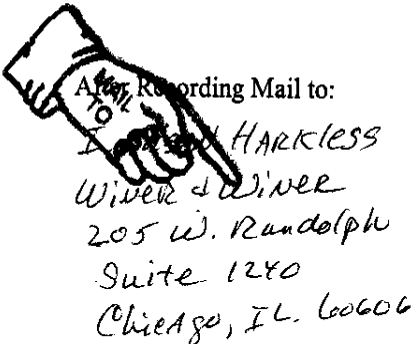 MAIL TO
After Recording Mail to:
HARKLESS
WINER & WINER
205 W. Randolph
Suite 1240
Chicago, IL. 60606